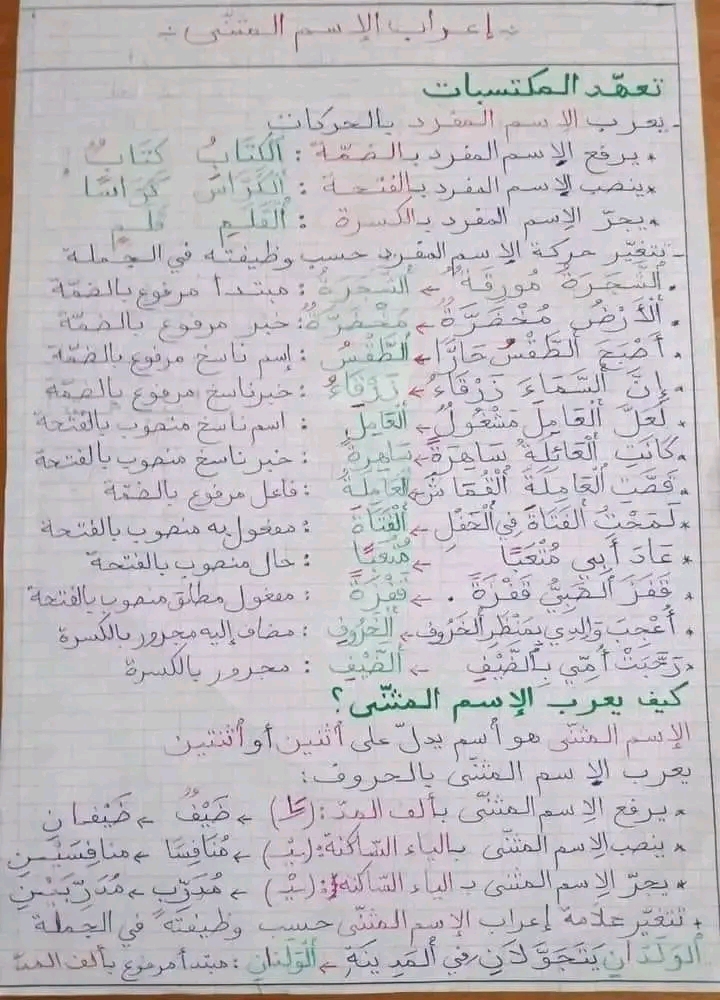 إعراب الإسم المثنّى
تعهّد المكتسبات
- يعرب الإسم المفرد بالحركات
* يرفع الإسم المفرد بالضمّة : اَلْكِتَابُ كِتَابٌ
* ينصب الإسم المفرد بالفتحة : اَلْكُرَّاسَ كُرَّاسًا
* يجرّ الإسم المفرد بالكسرة : اَلْقَلَمِ قَلَمٍ
- تتغيّر حركة الإسم المفرد حسب وظيفته في الجملة
• اَلشَّجَرَةُ مُورِقَةٌ ← اَلشَّجَرَةُ : مبتدأ مرفوع بالضمّة
• اَلْأَرْضُ مُخْضَرَّةٌ ← مُخْضَرَّةٌ : خبر مرفوع بالضمّة
• أَصْبَحَ اَلطَّقْسُ حَارًّا ← اَلطَّقْسُ : إسم ناسخ مرفوع بالضمّة
• إِنَّ اَلسَّمَاءَ زَرْقَاءُ ← زَرْقَاءُ : خبر ناسخ مرفوع بالضمّة
• لَعَلَّ اَلْعَامِلَ مَشْغُولٌ ← اَلْعَامِلَ : اسم ناسخ منصوب بالفتحة
* كَانَتِ اَلْعَائِلَةُ سَاهِرَةً ← سَاهِرَةً : خبر ناسخ منصوب بالفتحة
* قَصَّتِ اَلْعَامِلَةُ اَلْقُمَاشَ ← اَلْعَامِلَةُ : فاعل مرفوع بالضمّة
* لَمَحْتُ اَلْفَتَاةَ فِي اَلْحَفْلِ ← اَلْفَتَاةَ : مفعول به منصوب بالفتحة
* عَادَ أَبِي مُتْعَبًا ← مُتْعَبًا : حال منصوب بالفتحة
* قَفَزَ اَلصَّبِيُّ قَفْزَةً . ← قَفْزَةً : مفعول مطلق منصوب بالفتحة
* أُعْجِبَ وَالِدِي بِمَنْظَرِ اَلْخَرُوفِ ← اَلْخَرُوفِ : مضاف إليه مجرور بالكسرة
* رَحَّبَتْ أُمِّي بِالضَّيْفِ ← اَلضَّيْفِ : مجرور بالكسرة
كيف يعرب الإسم المثنّى ؟
الإسم المثنّى هو اَسم يدلّ على اَثنين أو اَثنتين
يعرب الإسم المثنّى بالحروف :
* يرفع الإسم المثنّى بألف المدّ : (ـَا) ← ضَيْفٌ ← ضَيْفَانِ
* ينصب الإسم المثنّى بالياء السّاكنة : (ـَيْـ) ← مُنَافِسًا ← منافِسَيْنِ
* يجرّ الإسم المثنى بـ الياء السّاكنة : (ـَيْـ) ← مُدَرِّبٍ ← مُدَرِّبَيْنِ
* تتغيّر علامة إعراب الإسم المثنّى حسب وظيفته في الجملة
اَلْوَلَدَانِ يَتَجَوَّلَانِ فِي اَلْمَدِينَةِ ← اَلْوَلَدَانِ : مبتدأ مرفوع بألف المدّ